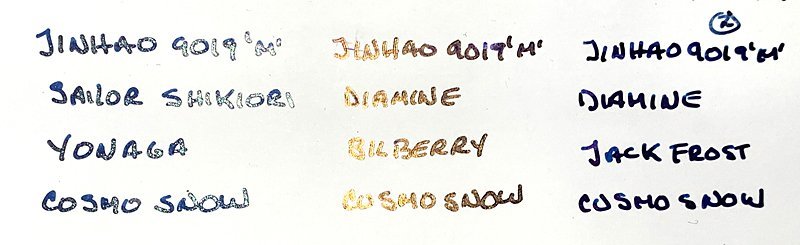 JINHAO 9019 'M'
SAILOR SHIKIORI
YONAGA
COSMO SNOW
JINHAO 9019 'M'
DIAMINE
BILBERRY
COSMO SNOW
2
JINHAO 9019 'M'
DIAMINE
JACK FROST
COSMO SNOW